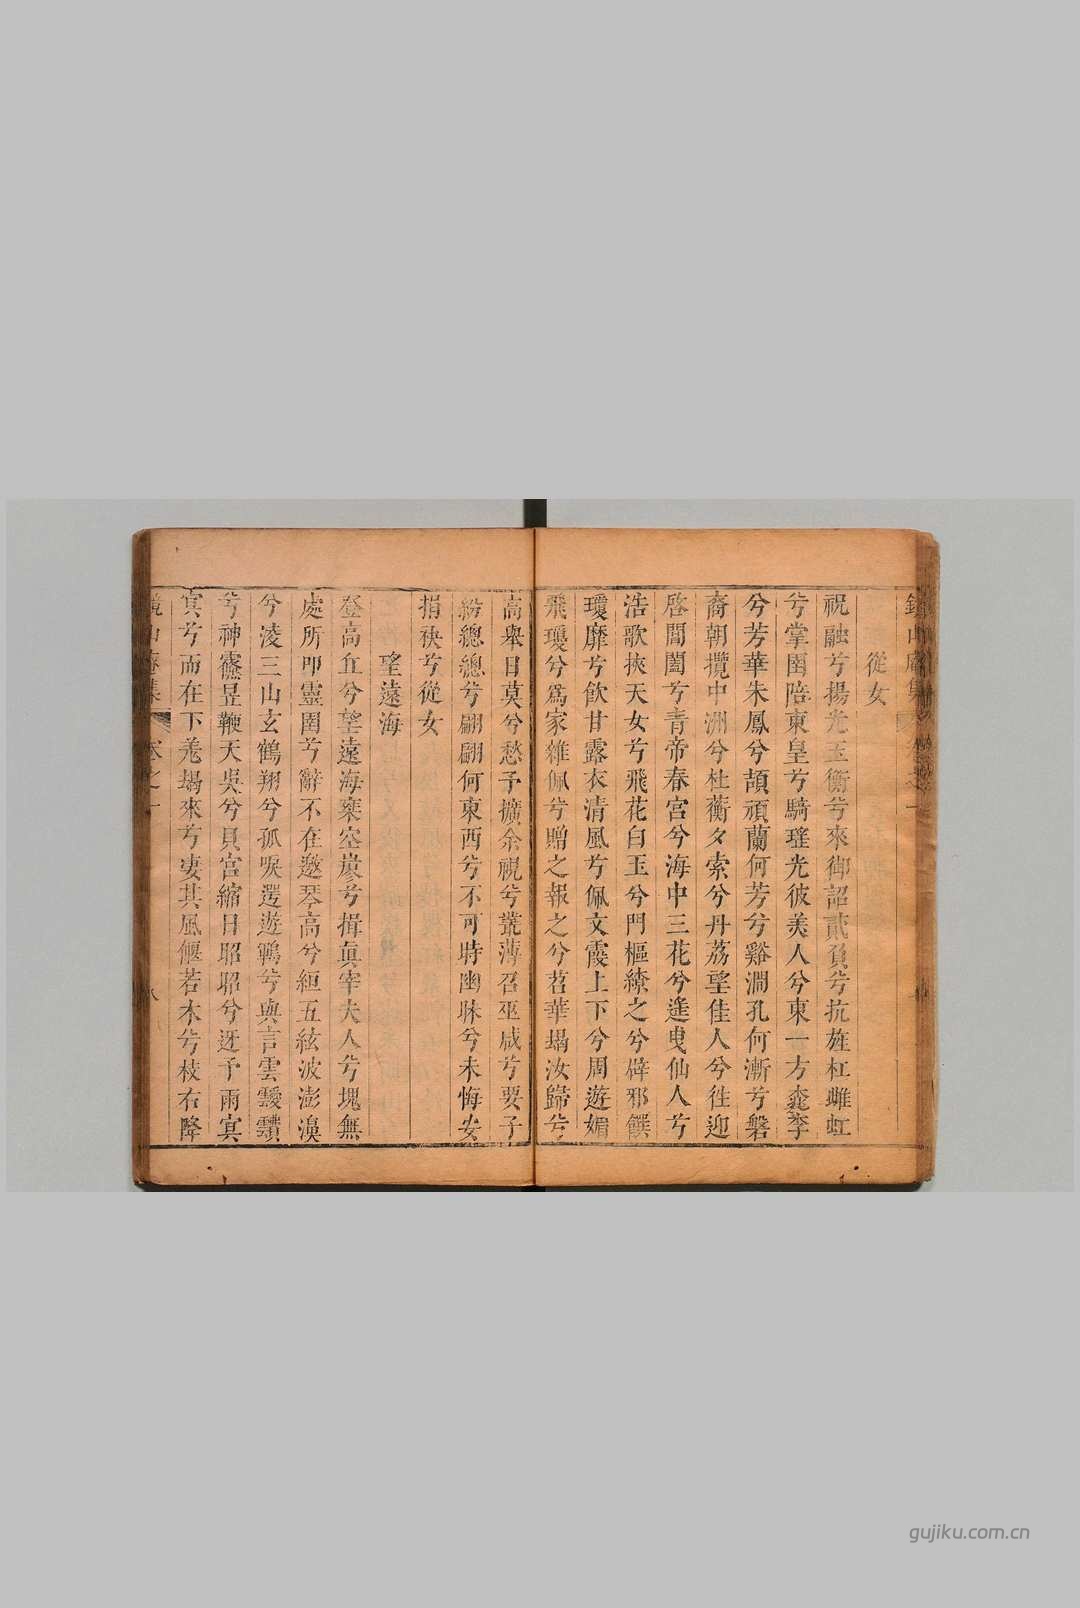 從女
祝融兮揚光玉衡兮來御詔貳負兮抗旌杠雌虹
兮掌圉陪東皇兮騎瑤光彼美人兮東一方李
兮芳華朱鳳兮頡頏蘭何芳兮谿澗孔何漸兮磐
裔朝攬中洲兮杜蘅夕索兮丹荔望佳人兮往迎
啓閶闔兮青帝春宮兮海中三花兮遙曳仙人兮
浩歌挾天女兮飛花白玉兮門樞繚之兮辟邪饌
瓊靡兮飲甘露衣清風兮佩文霞上下兮周遊媚
飛瓊兮爲家雜佩兮贈之報之兮苕華朅汝歸兮
高舉目莫兮愁予擴余視兮叢薄召巫咸兮要子
紛總總兮翩翩何東西兮不可時幽昧兮未悔安
捐袂兮從女
望遠海
登高丘兮望遠海乘空兮揖真宰夫人兮塊無
處所叩靈圉兮辭不在邀琴高兮絙五絃波澎濞
兮淩三山玄鶴翔兮孤唳選遊鵷兮與言雲靉靆
兮神靈昱鞭天吳兮貝宮縮日昭昭兮迓予雨冥
冥兮而在下羌朅來兮凄其風偃若木兮枝右降
鏡山菴集
卷之一
八